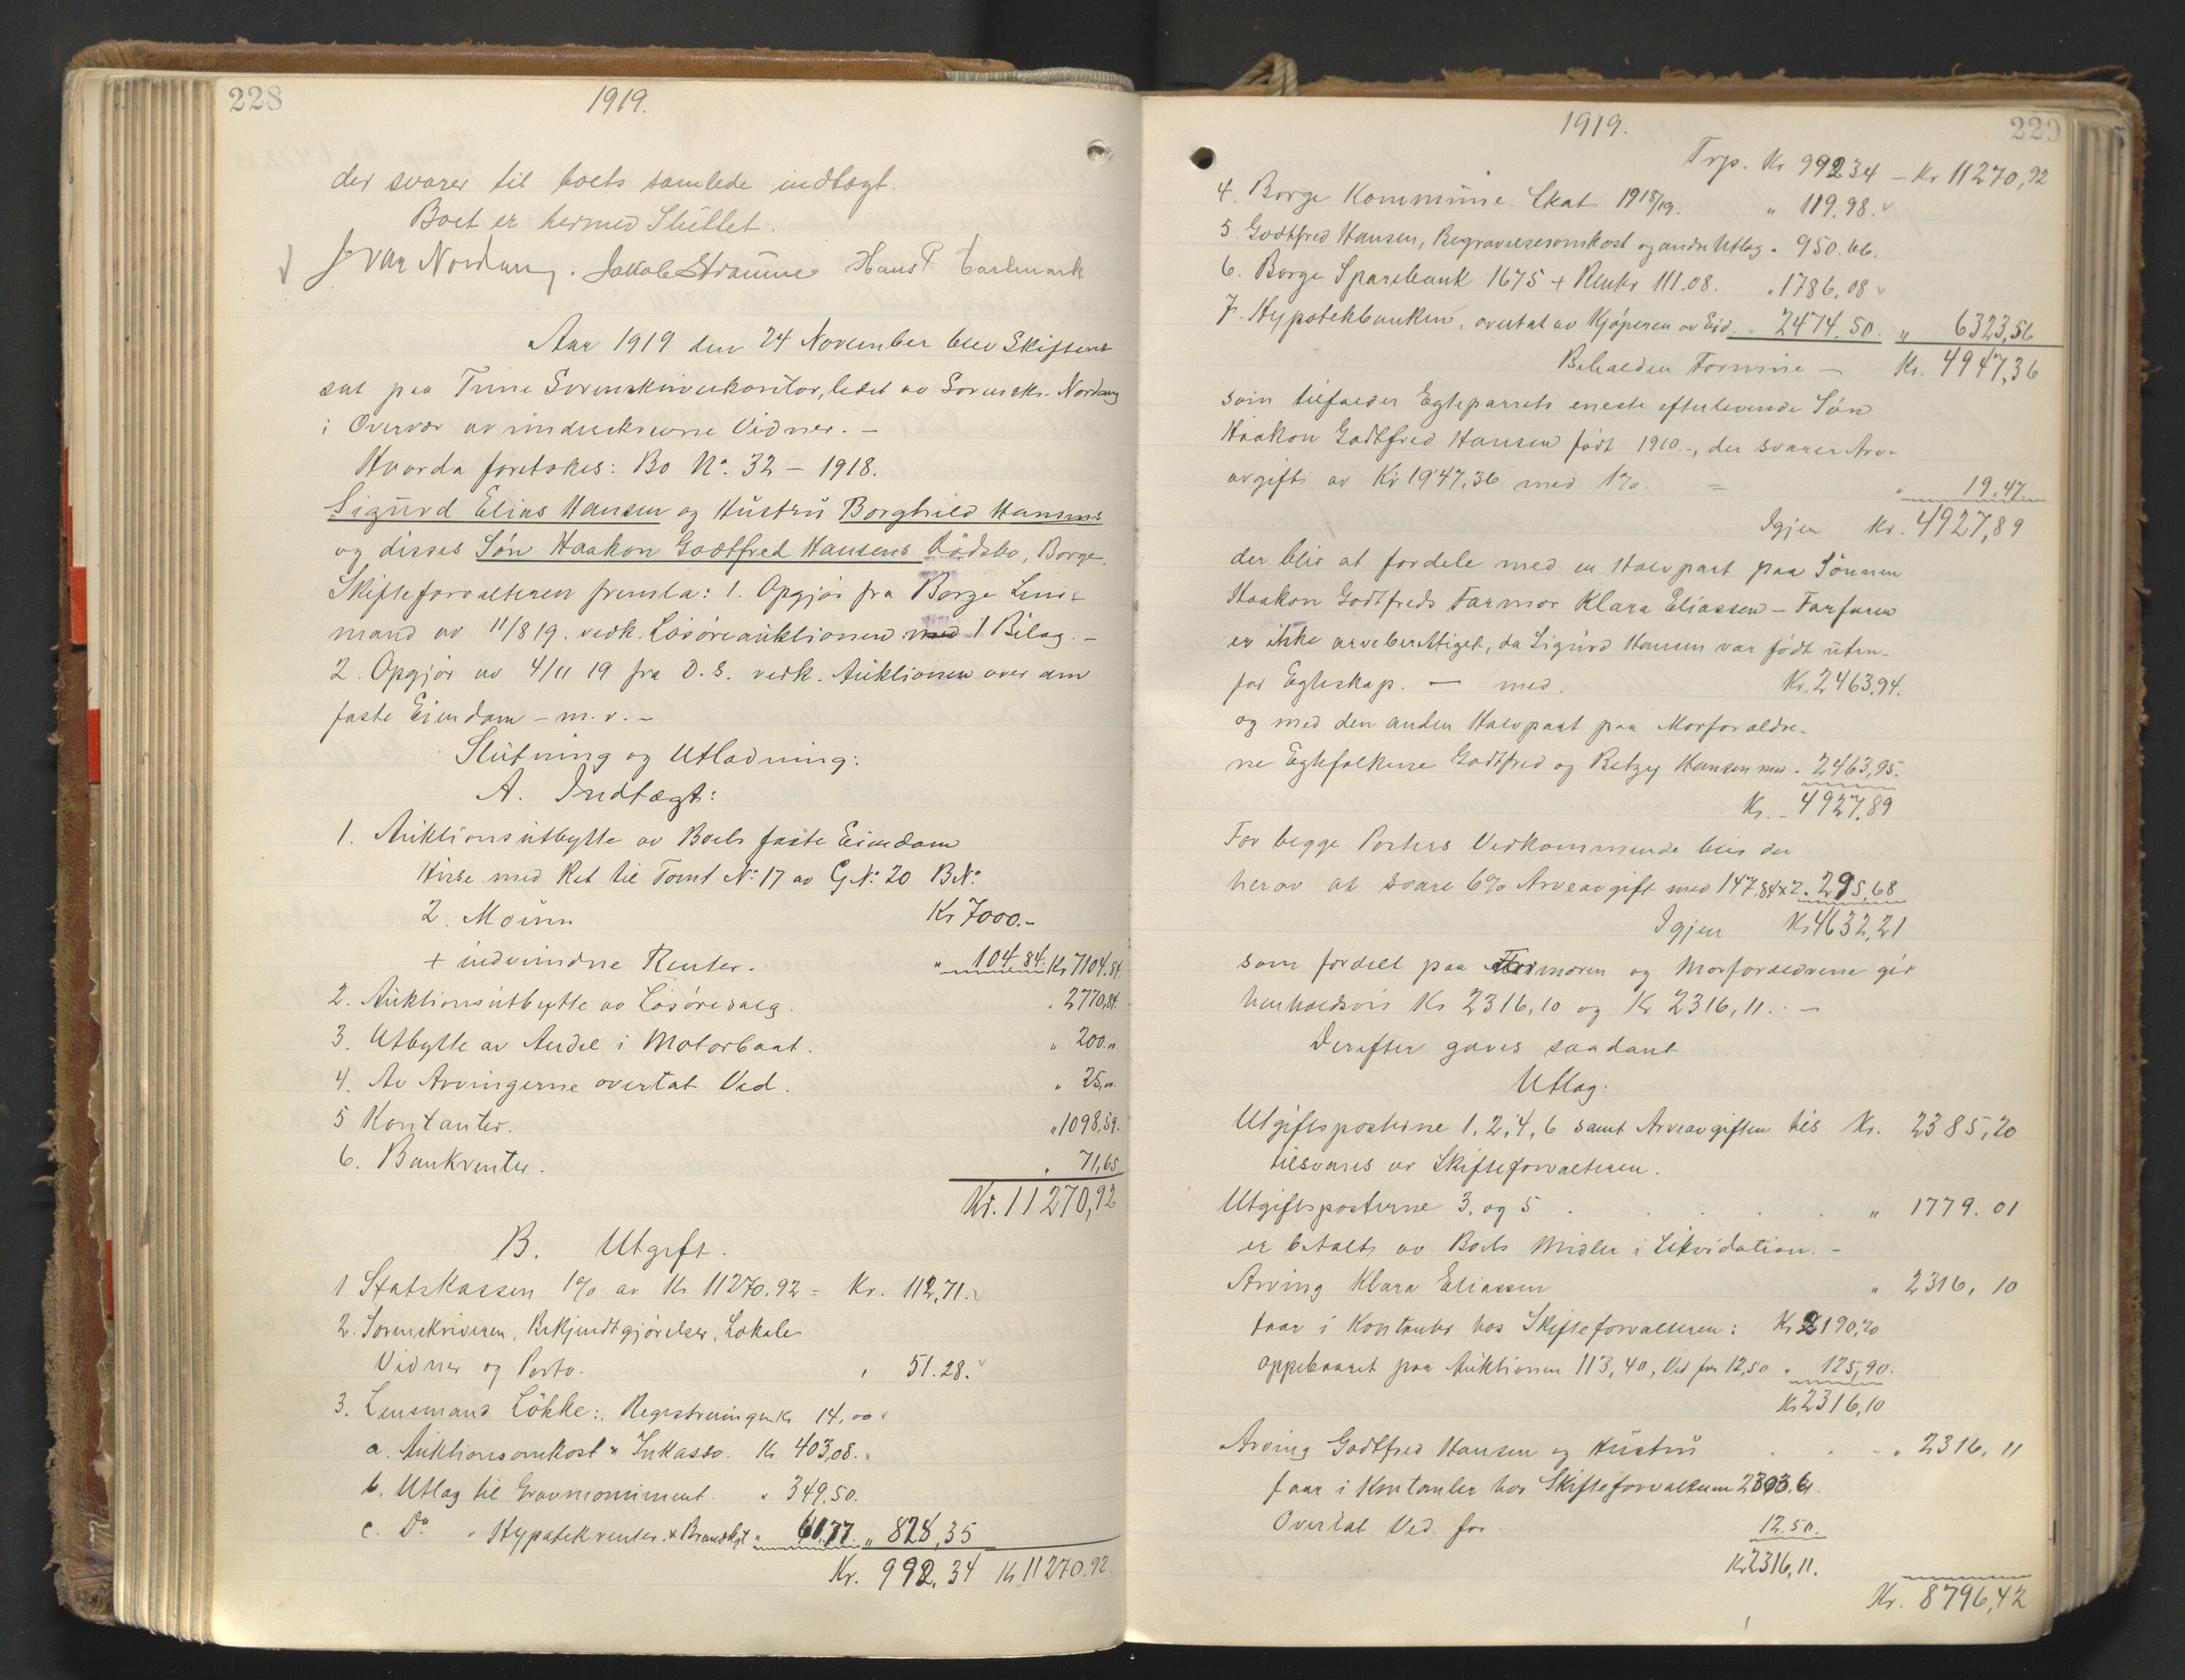 228
1919.
der svarer til boets samlede indtægt.
Boet er hermed Sluttet.
Ivar Nordang. Jakob Straume Hans P
Aar 1919 den 24 November blev Skifteret
sat paa Tune Sorenskriverkontor, ledet av Sorenskr. Nordang
i Overvær av underskrevne Vidner. –
Hvorda foretokes: Bo No. 32 – 1918.
Sigurd Elias Hansen og Hustru Borghild Hansens
og disses Søn Haakon Godtfred Hansens Rödsbo, Borge.
Skifteforvalteren fremla: 1. Opgjör fra Borge Lens-
mand av 11/8 19. vedk. Lösöreauktionen med 1 Bilag. –
2. Opgjör av 4/11 19 fra D. S. vedk. Auktionen over den
faste Eiendom – m. v. –
Slutning og Utlodning:
A. Indtægt:
1. Auktionsutbytte av Boets faste Eiendom
Huse med Ret til Tomt No. 17 av G.No. 20 B.No.
2. Moum Kr 7000.–
+ indvundne Renter. " 104.84. Kr 7104.84
2. Auktionsutbytte av Lösöresalg. " 2770,84.
3. Utbytte av Andel i Motorbaat. " 200.00.
4. Av Arvingerne overtat Ved. " 25,00.
5 Kontanter. " 1098.59.
6. Bankrenter. " 71,65
Kr. 11270,92
B. Utgift.
1 Statskassen 1% av Kr 11270.92 = Kr. 112,71.
2. Sorenskriveren, Bekjendtgjörelser, Lokale
Vidner og Porto. " 51.28.
3. Lensmand Lökke: Registreringen Kr 14,00
a. Auktionsomkost " Inkasso. Kr 403,08.
b. Utlag til Gravmonument. " 349.50.
c. Do. " Hypotekrenter & Brandkgt " 61.77. " 828,35
Kr. 992,34 Kr 11270.92.
1919.
229
Trp. Kr 992.34 – Kr 11270,92
4. Borge Kommune. Skat 1918/19. " 119.98.
5. Godtfred Hansen, Begravelsesomkost og andre Utlag " 950.66.
6. Borge Sparebank 1675 + Renter 111.08. " 1786,08
7. Hypotekbanken, overtat av Kjöperen av Eid. " 2474.50. " 6323,56
Beholden Formue – Kr. 4947,36
som tilfalder Egteparrets eneste efterlevende Sön
Haakon Godtfred Hansen født 1910 –, der svarer Arv-
avgift av Kr 1947.36 med 1% = " 19.47
Igjen Kr. 4927,89
der blir at fordele med en Halvpart paa Sönnen
Haakon Godtfreds Farmor Klara Eliassen – Farfaren
er ikke arveberettiget, da Sigurd Hansen var født uten-
for Egteskap. – med. Kr. 2463,94.
og med den anden Halvpart paa Morforældre-
ne Egtefolkene Godtfred og Betzy Hansen med " 2463,95.
Kr. 4927,89
For begge Parters Vedkommende blir der
herav at svare 6% Arveavgift med 147,84 x 2 " 295,68
Igjen Kr 4632,21
som fordelt paa Farmoren og Morforældrene gir
henholdsvis Kr 2316,10 og Kr 2316,11. –
Derefter gaves saadant
Utlag:
Utgiftsposterne 1, 2, 4, 6 samt Arveavgiften tils Kr. 2385,20
tilsvares av Skifteforvalteren.
Utgiftsposterne 3. og 5 . . . . . " 1779.01
er betalt av Boets Midler i Likvidation. –
Arving Klara Eliassen " 2316, 10
faar i Kontanter hos Skifteforvalteren: Kr 2190,20
oppebaaret paa Auktionen 113,40, Ved for 12,50 " 125,90.
Kr 2316,10
Arving Godtfred Hansen og Hustru . . . " 2316, 11
faar i Kontanter hos Skifteforvalteren 2303.61.
Overtat Ved for 12.50.
Kr 2316,11.
Kr. 8796,42